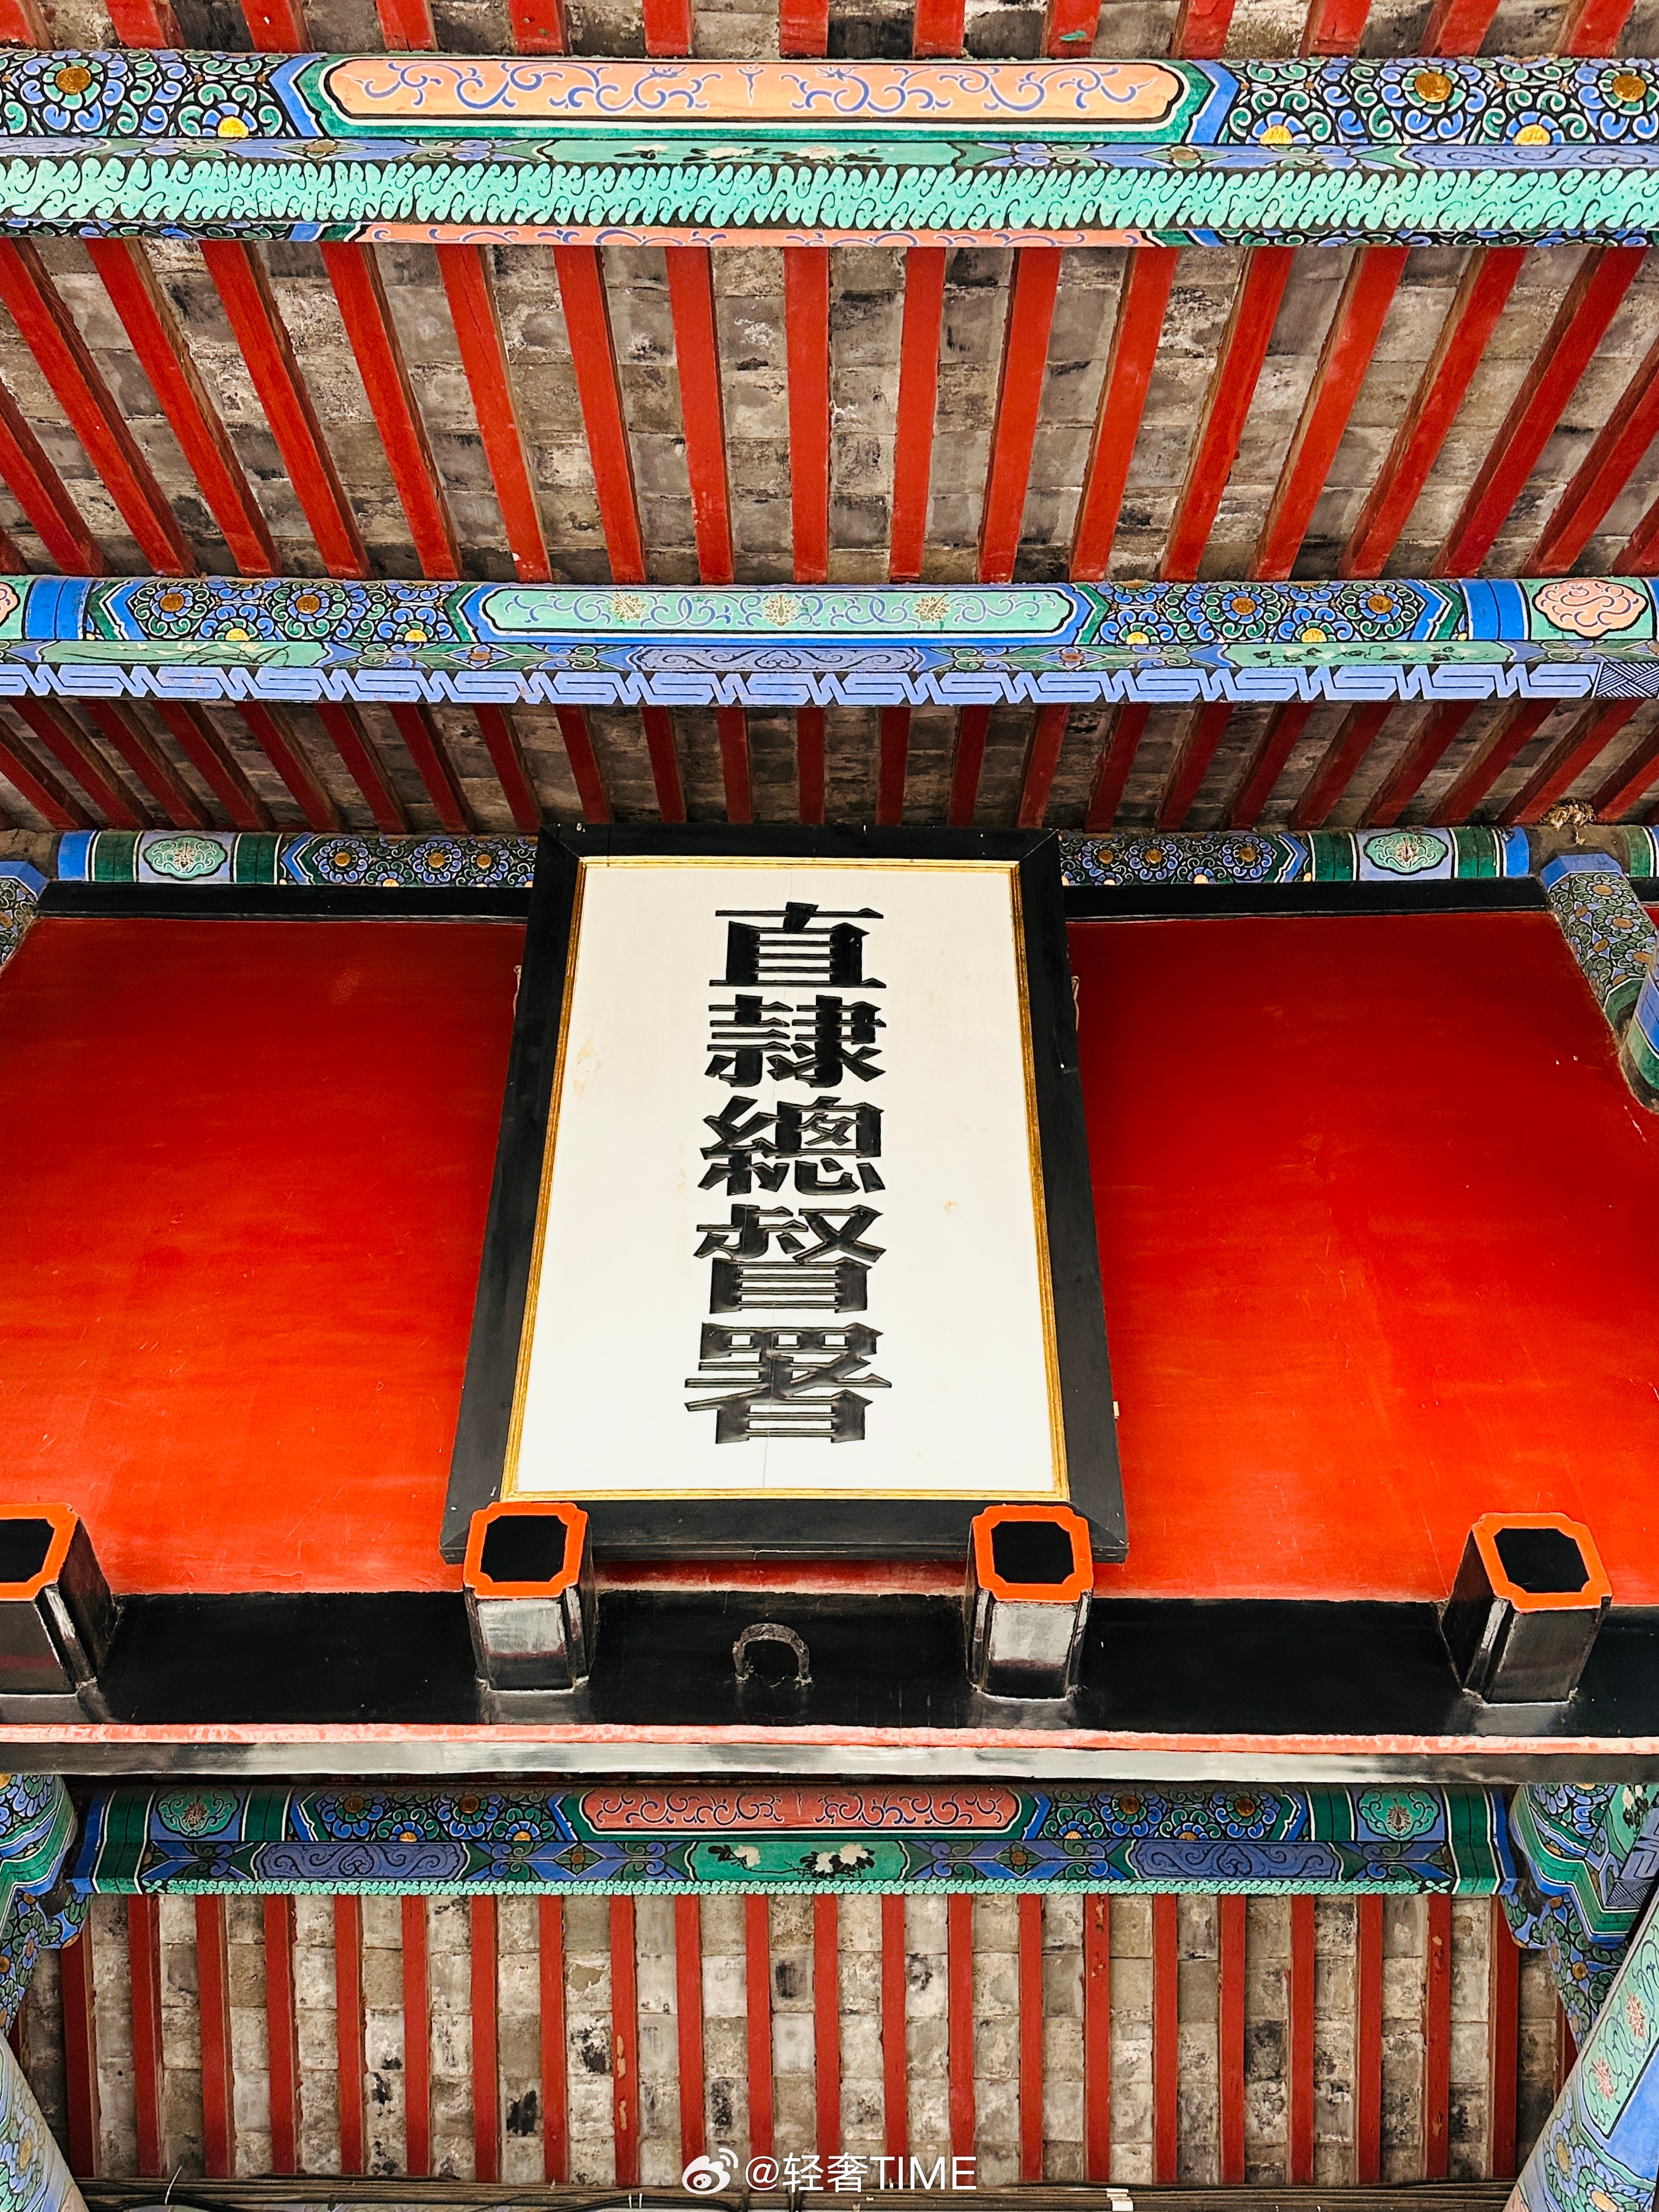 直隷總督署
@轻奢TIME